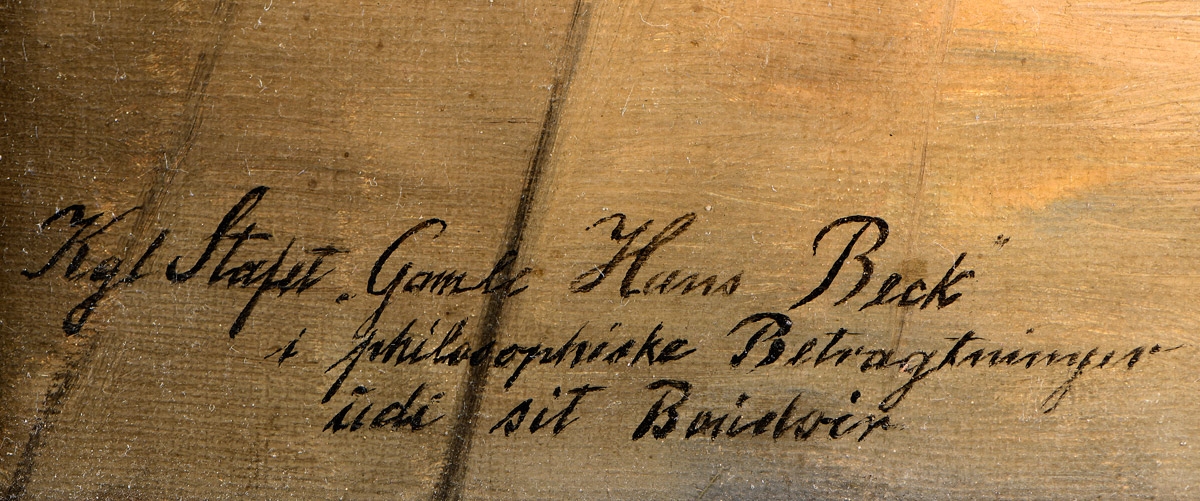 Kgl Stafet „Gamle Hans Beck"
i philosophiske Betragtninger
udi sit Boudoir